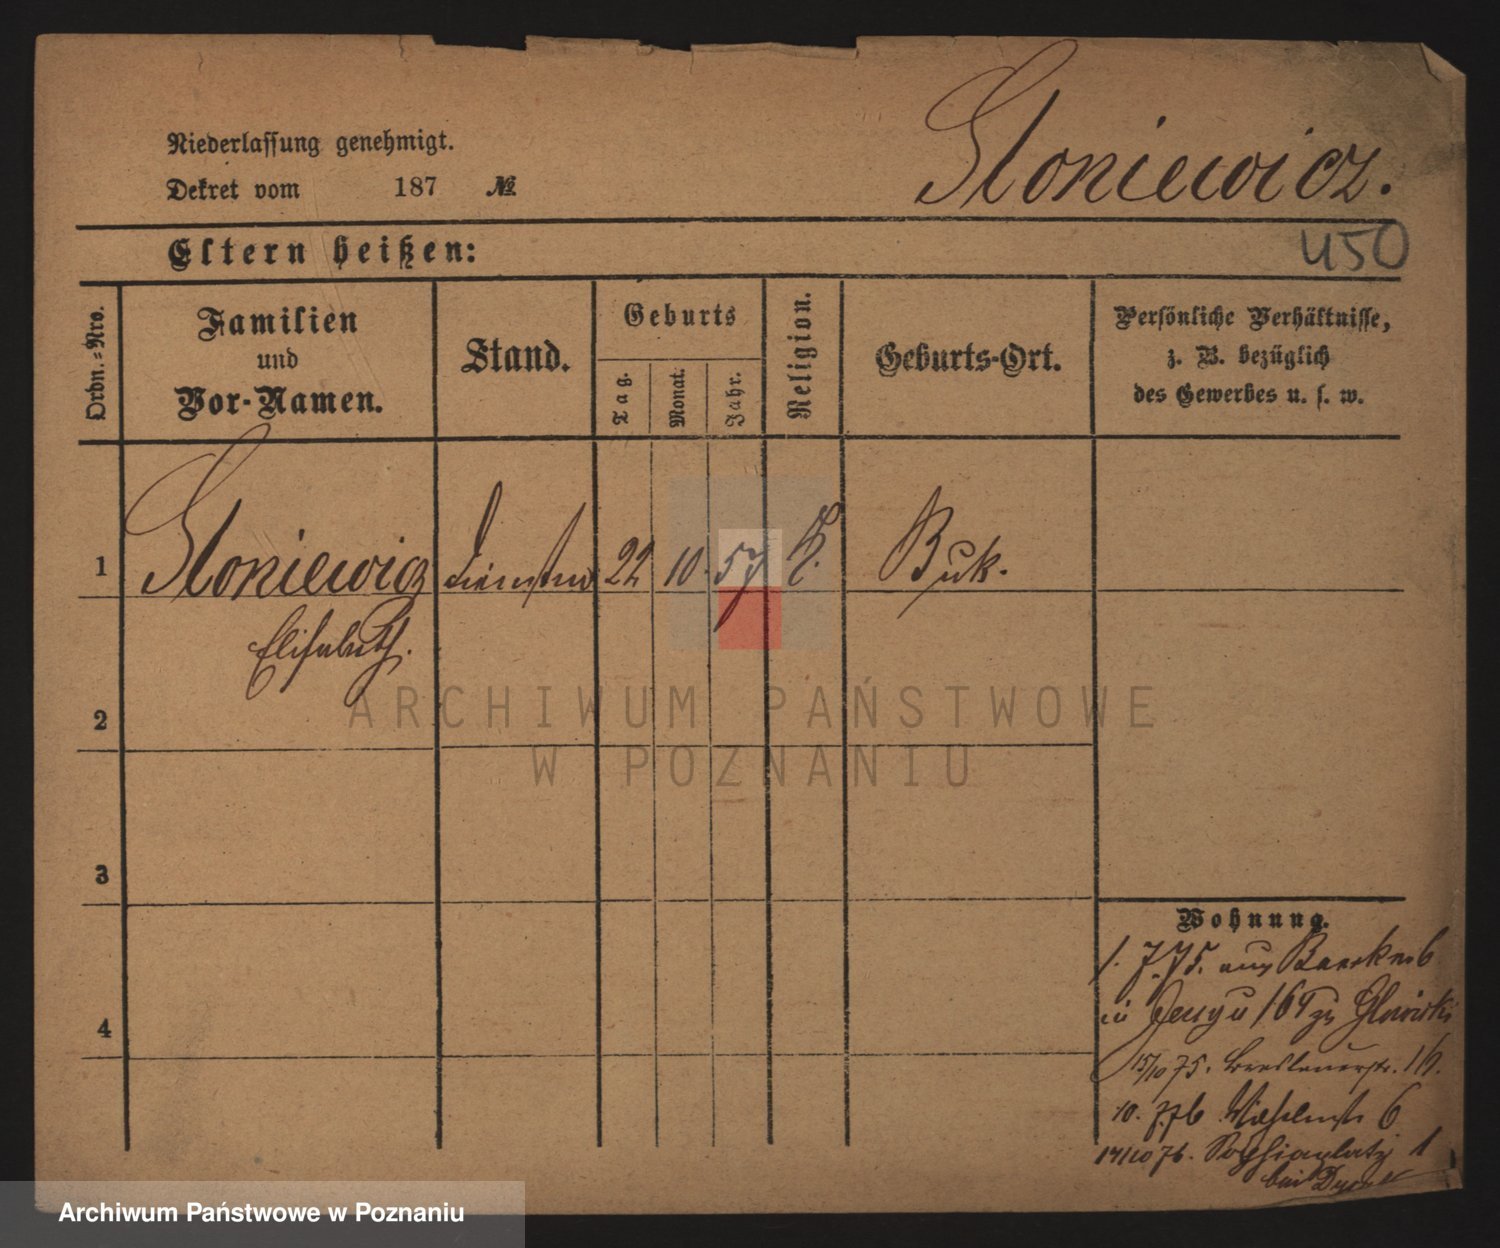 Słoniewicz.
Niederlassung genehmigt.
Dekret vom 187 №
450
Eltern heißen:
Ordn.=Nro.
Familien
und
Vor-Namen.
Stand.
Geburts
Tag.
Monat.
Jahr.
Religion.
Geburts-Ort.
Persönliche Verhältnisse,
z. B. bezüglich
des Gewerbes u. s. w.
1 Słoniewicz 22 10. 57 K. Buk.
Elisabeth.
2
3
4
Wohnung.
1. 7. 75. aus
in 164
15/10 75. Breslauerstr. 16.
10. 7. 76 6
14/10 76. Sapiehaplatz 1
bei
ARCHIWUM PAŃSTWOWE
W POZNANIU
Archiwum Państwowe w Poznaniu